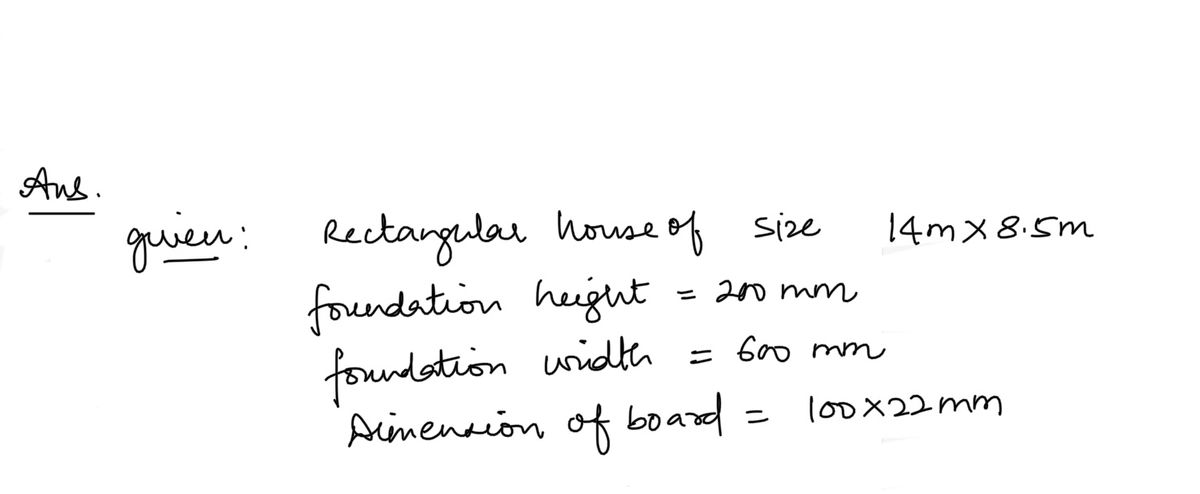 Ans.
given: Rectangular house of size 14m × 8.5m
foundation height = 200 mm
foundation width = 600 mm
Dimension of board = 100 × 22 mm